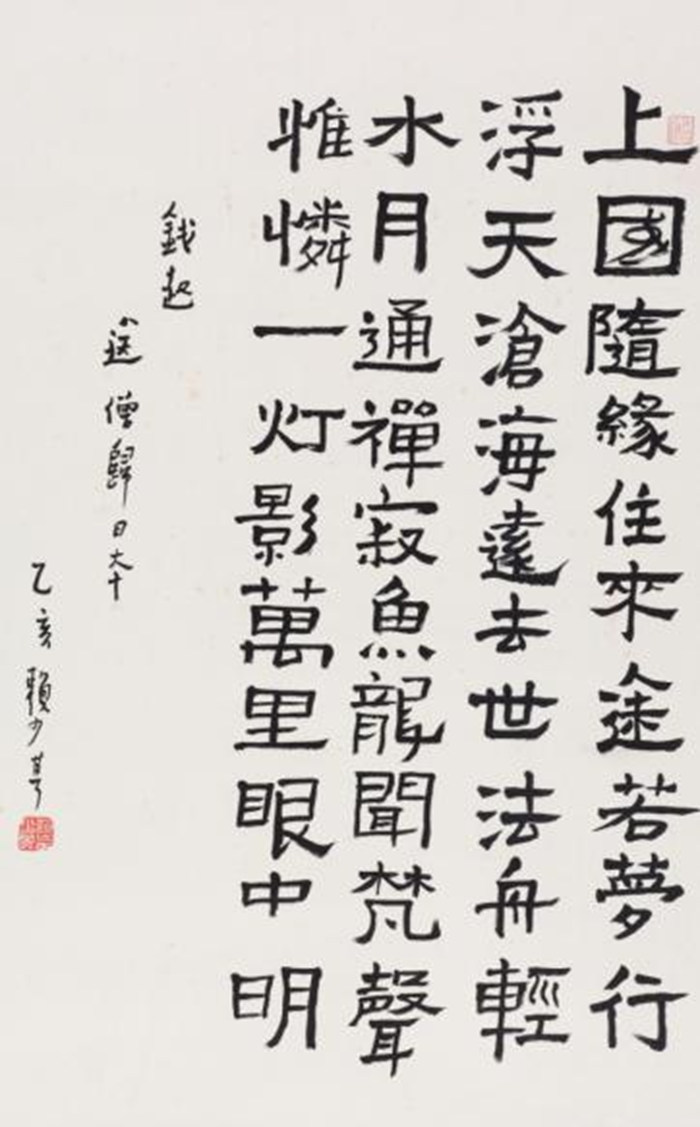 上國隨緣住來途若夢行
浮天滄海遠去世法舟輕
水月通禪寂魚龍聞梵聲
惟憐一灯影萬里眼中明
錢起
送僧歸日本
乙亥賴少其